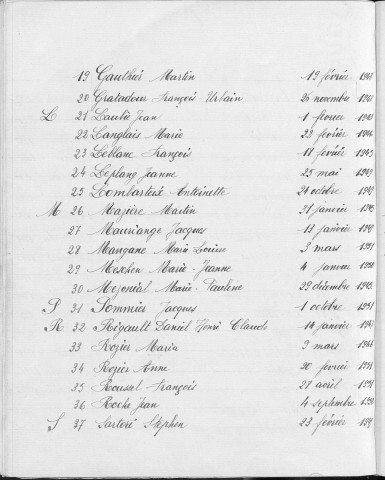 19 Gauthier Martin 19 février
20 Gratadour François Urbain 26 novembre
L 21 Laubie Jean 1 février 1943
22 Langlais Marie 22 février 1944
23 Leblanc François 11 février 1945
24 Leplang Jeanne 25 mai 1949
25 Lombarteix Antoinette 21 octobre 1949
M 26 Mazière Martin 21 janvier
27 Mauriange Jacques 13 janvier
28 Mangane Marie Louise 3 mars 1951
29 Meschen Marie-Jeanne 4 janvier
30 Marie-Pauline 29 décembre
31 Pommier Jacques 1 octobre 1951
R 32 Régault Daniel Henri Claude 14 janvier
33 Rozier Maria 2 mars
34 Rozier Anne 20 février 1951
35 Roussel François 28 avril 1951
36 Roche Jean 4 septembre
S 37 Sartori Stephen 23 février